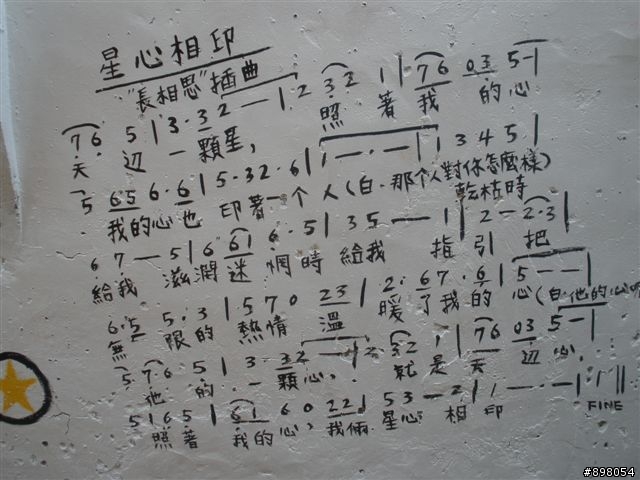 星心相印
"長相思"插曲
2 3 2 1 | 7 6 0 3 5 - |
照 著 我 的 心
7 6 5 | 3 · 3 2 - - |
天 辺 一 顆星,
5 6 5 6 · 6 | 5 · 3 2 · 6 | 1 - - · - - | 1 3 4 5 |
我的心也 印著一个人(白·那个人對你怎麼樣)
乾枯時
6 7 - 5 | 6 6 1 6 · 5 | 3 5 - - 1 | 2 - 2 · 3 |
給我 滋潤迷惘時給我 指引 把
6 · 5 5 · 3 | 5 7 0 2 3 | 2 · 6 7 · 6 | 5 - - |
無 限的 熱情 溫 暖了我的 心(白·他的心呢
5 7 6 5 | 3 · 3 2 - - | 2 3 2 1 | 7 6 0 3 5 - |
他 的 一 顆心, 就 是 天 辺 心,
5 1 6 5 | 6 1 6 0 2 2 1 | 5 3 - 2 | 1 - - · - - | 1 ||
照著 我的心, 我倆 星心 相 印
FINE
#898054